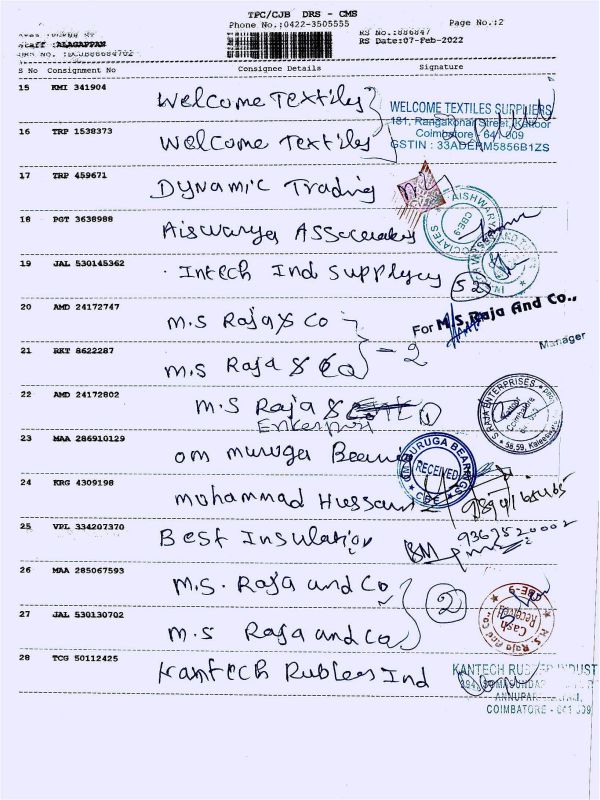 TPC/CJB DRS - CMS
Phone No.:0422-3505555
Page No.:2
RS No.:886847
Staff :ALAGAPPAN
RS Date:07-Feb-2022
S No Consignment No Consignee Details Signature
15 KMI 341904 Welcome Textiles
WELCOME TEXTILES SUPPLIERS
181, Rangakonar Street, Kattoor
Coimbatore - 641 009
GSTIN : 33ADEPM5856B1ZS
16 TRP 1538373 Welcome Textiles
17 TRP 459671 Dynamic Trading
18 PGT 3638988 Aiswarya Associates
19 JAL 530145362 Intech Ind Supplyeys
20 AMD 24172747 M.S Raja & Co
For M.S.Raja And Co.,
Manager
21 RKT 8622287 M.S Raja & Co - 2
22 AMD 24172802 M.S Raja &
Enterprises
23 MAA 286910129 om muruga Bearing
MURUGA BEARINGS
RECEIVED
CBE
24 KRG 4309198 Mohammad Hussain
25 VPL 334207370 Best Insulation
BM
9367520002
26 MAA 285067593 M.S. Raja and Co
2
27 JAL 530130702 M.S Raja and Co
Cash
Received
28 TCG 50112425 Kamtech Rubbers Ind
KANTECH RUBBER INDUST
COIMBATORE - 641 009